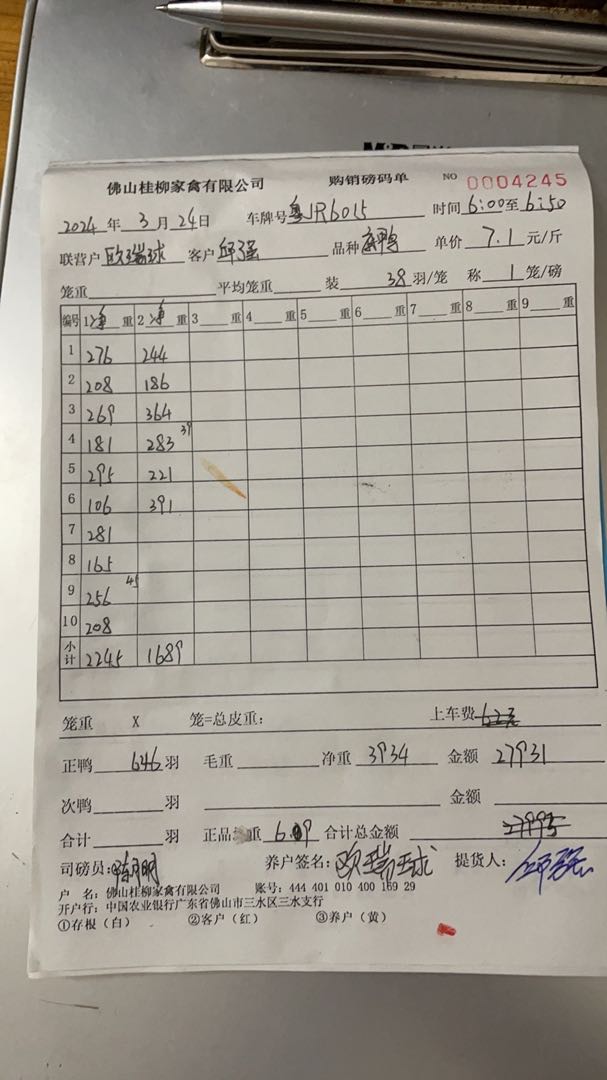 佛山桂柳家禽有限公司 购销磅码单 NO 0004245
2024年3月24日 车牌号粤JR6015 时间6:00至6:50
联营户 欧瑞球 客户 邱强 品种 单价 7.1 元/斤
笼重 平均笼重 装 38 羽/笼 称 1 笼/磅
编号 1净重 2净重 3重 4重 5重 6重 7重 8重 9重
1 276 244
2 208 186
3 269 364
4 181 283 39
5 295 221
6 106 391
7 281
8 165
9 256 45
10 208
小计 2245 1689
笼重 X 笼=总皮重: 上车费 62元
正鸭 646 羽 毛重 净重 3934 金额 27931
次鸭 羽 金额
合计 羽 正品 重 6.09 合计总金额 27995
司磅员: 养户签名: 欧瑞球 提货人: 邱强
户 名: 佛山桂柳家禽有限公司 账号: 444 401 010 400 169 29
开户行: 中国农业银行广东省佛山市三水区三水支行
①存根(白) ②客户(红) ③养户(黄)